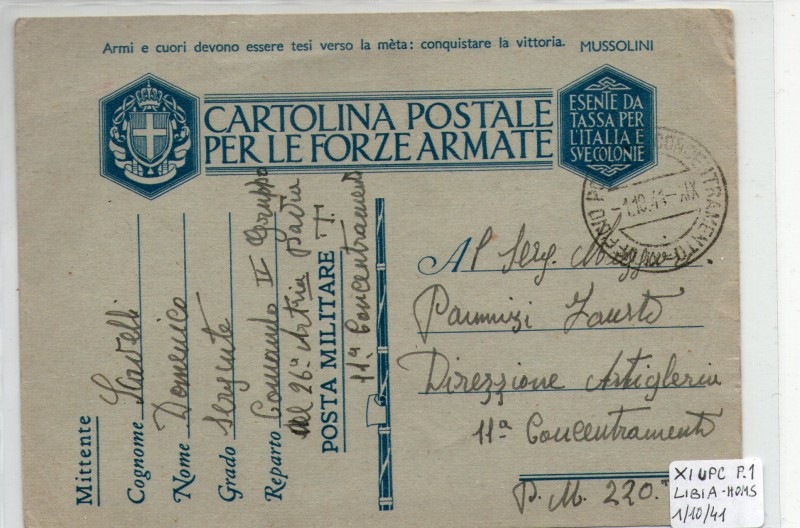 Armi e cuori devono essere tesi verso la mèta: conquistare la vittoria. MUSSOLINI
CARTOLINA POSTALE
PER LE FORZE ARMATE
ESENTE DA
TASSA PER
L'ITALIA E
SVE COLONIE
CONCENTRAMENTO
-1.10.41-XIX
Mittente
Cognome Scavelli
Nome Domenico
Grado Sergente
Reparto Comando II Gruppo
del 26ª Artria Pavia
POSTA MILITARE T.
11ª Concentramento
Al Serg. Maggiore
Fausto
Direzzione Artiglieria
11ª Concentramento
P. M. 220.T
XI UPC P.1
LIBIA-HOMS
1/10/41